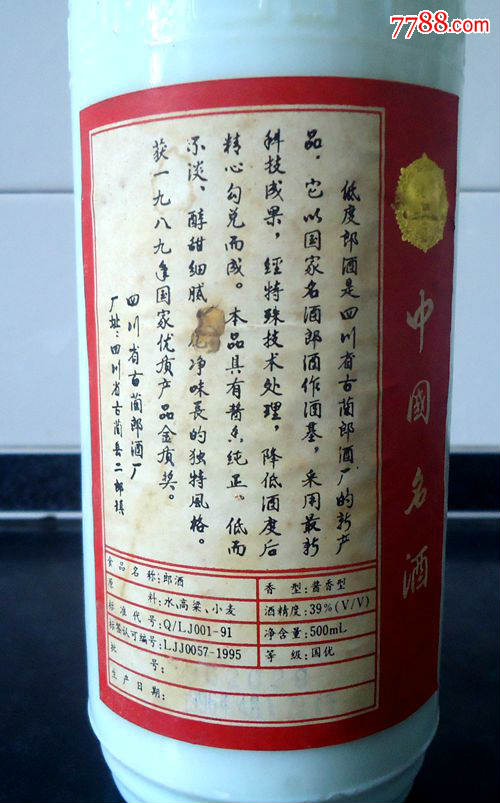 7788.com
中國名酒
低度郎酒是四川省古蔺郎酒厂的新产
品，它以国家名酒郎酒作酒基，采用最新
科技成果，經特殊技术处理，降低酒度后
精心勾兑而成。本品具有酱香纯正、低而
不淡、醇甜细腻、净味長的独特風格。
获一九八九年国家优质产品金质奖。
四川省古蔺郎酒厂
厂址：四川省古蔺县二郎镇
食品名称：郎酒
原料：水,高粱、小麦
标准代号：Q/LJ001-91
标签认可编号：LJJ0057-1995
批号：
生产日期：
香型：酱香型
酒精度：39%(V/V)
净含量：500mL
等级：国优